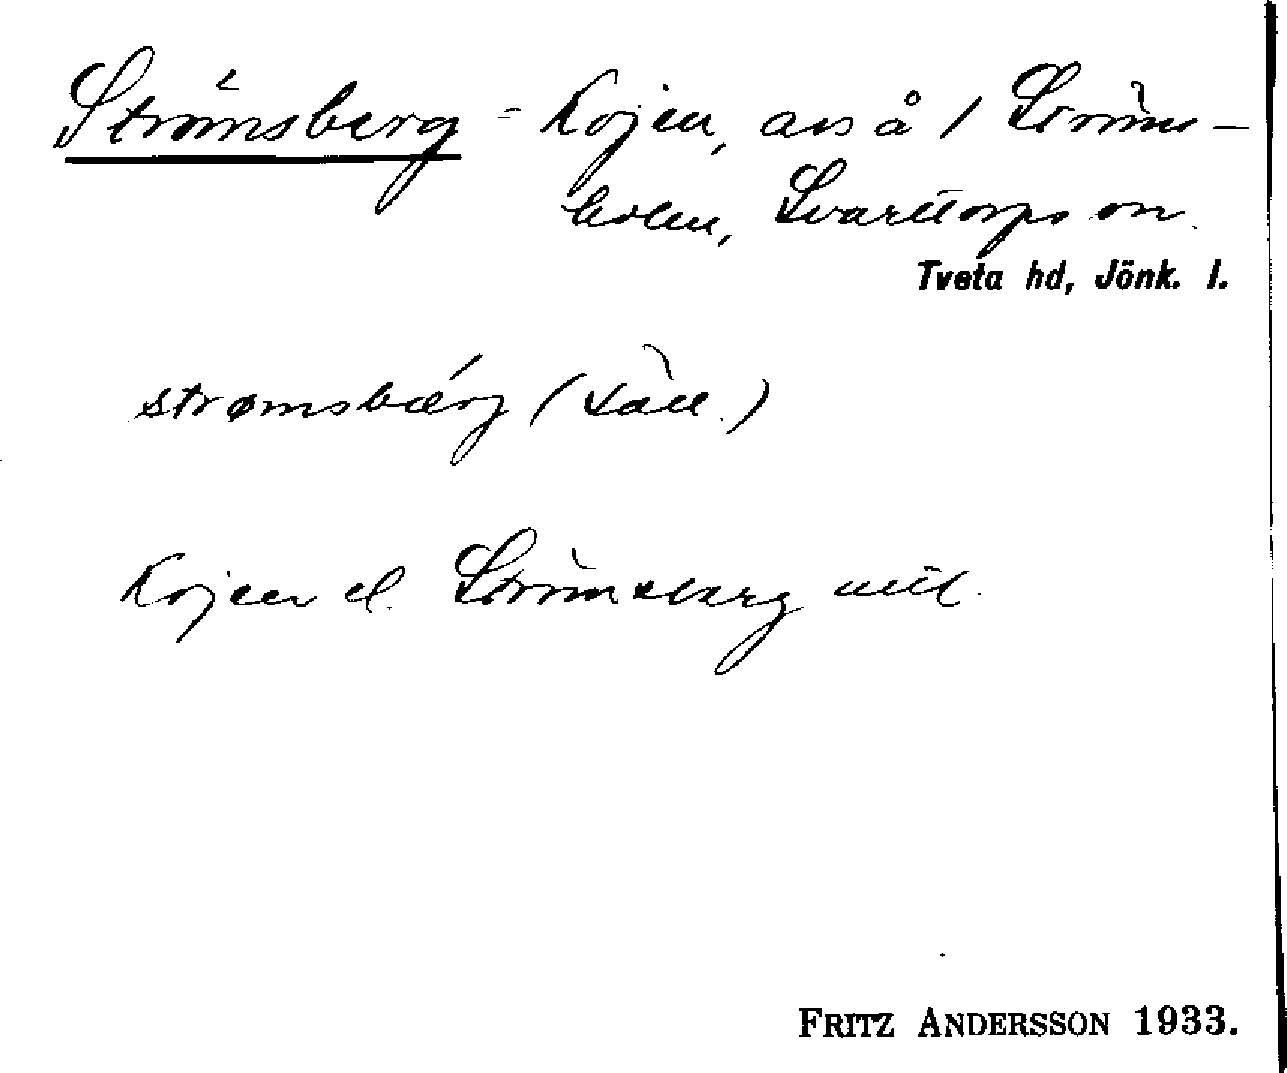 Strömsberg = Kojen, avs å 1 Ströms-
holm, Svarttorps sn.
Tveta hd, Jönk. l.
strømsbærj (säll.)
Kojen el. Strömsberg
FRITZ ANDERSSON 1933.